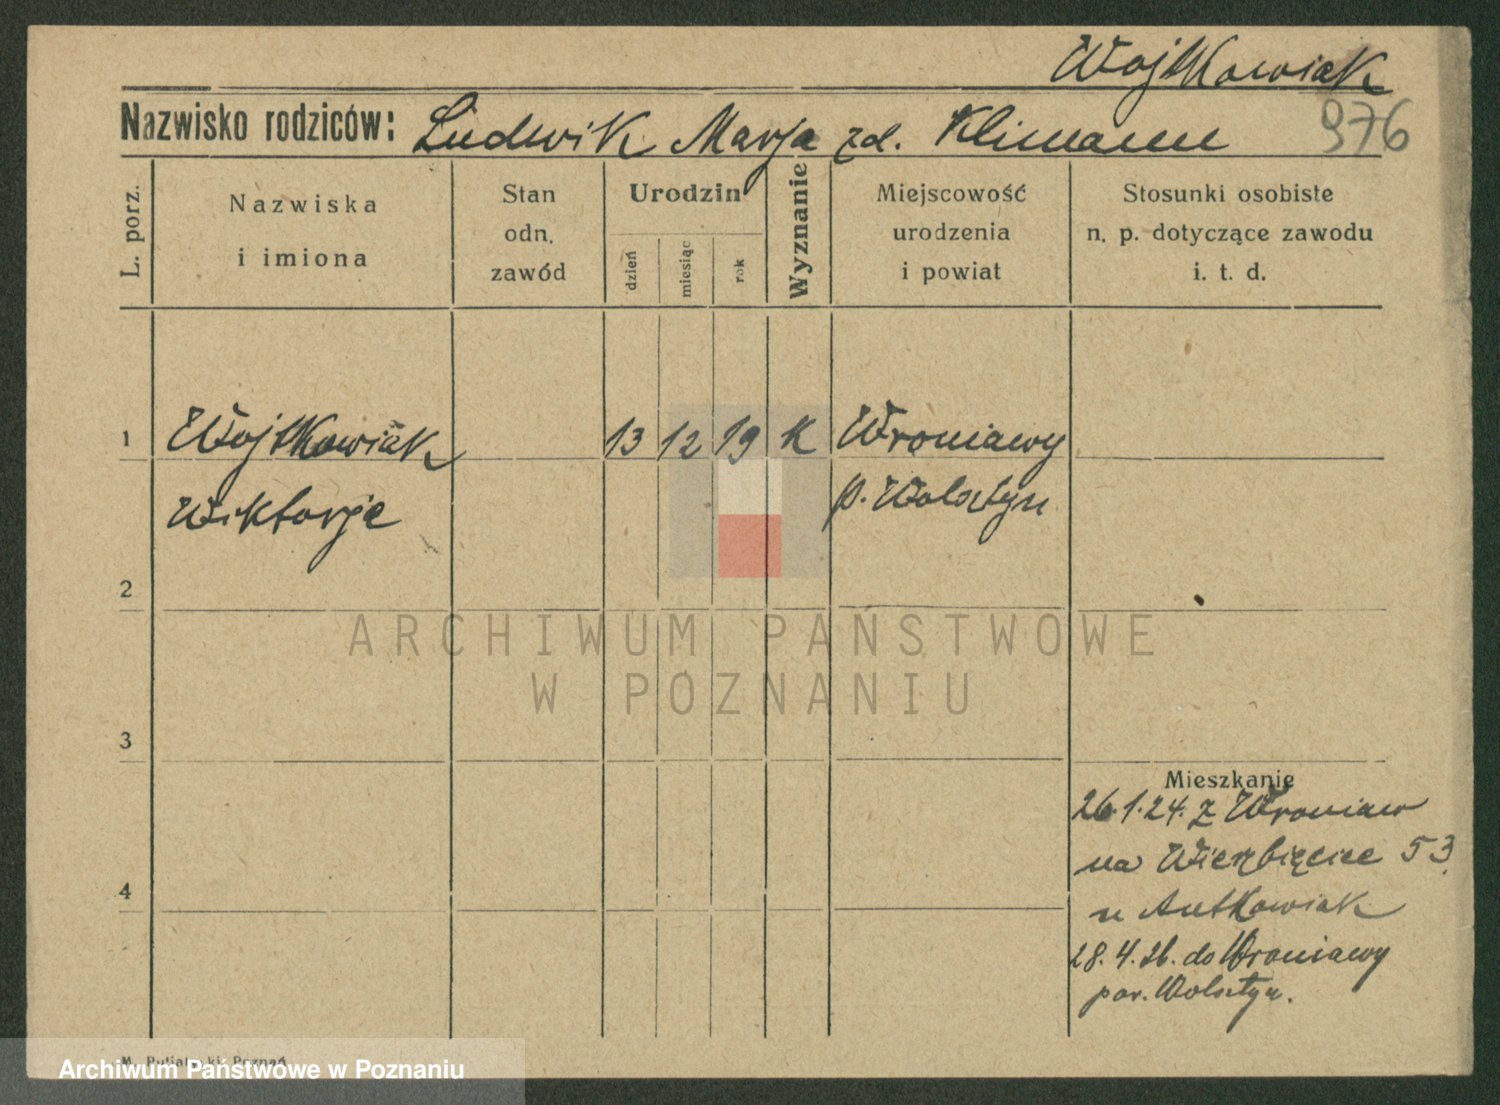 Wojtkowiak
Nazwisko rodziców: Ludwik Marja zd. Klimann 976
L. porz.
Nazwiska
i imiona
Stan
odn.
zawód
Urodzin
dzień
miesiąc
rok
Wyznanie
Miejscowość
urodzenia
i powiat
Stosunki osobiste
n. p. dotyczące zawodu
i. t. d.
1 Wojtkowiak 13 12 19 K Wroniawy
Wiktorje p. Wolsztyn
2
ARCHIWUM PAŃSTWOWE
W POZNANIU
3
Mieszkanie
26.1.24. z Wroniaw
na Wierzbięcice 53.
4
u Antkowiak
28.4.26. do Wroniawy
pow. Wolsztyn.
Archiwum Państwowe w Poznaniu